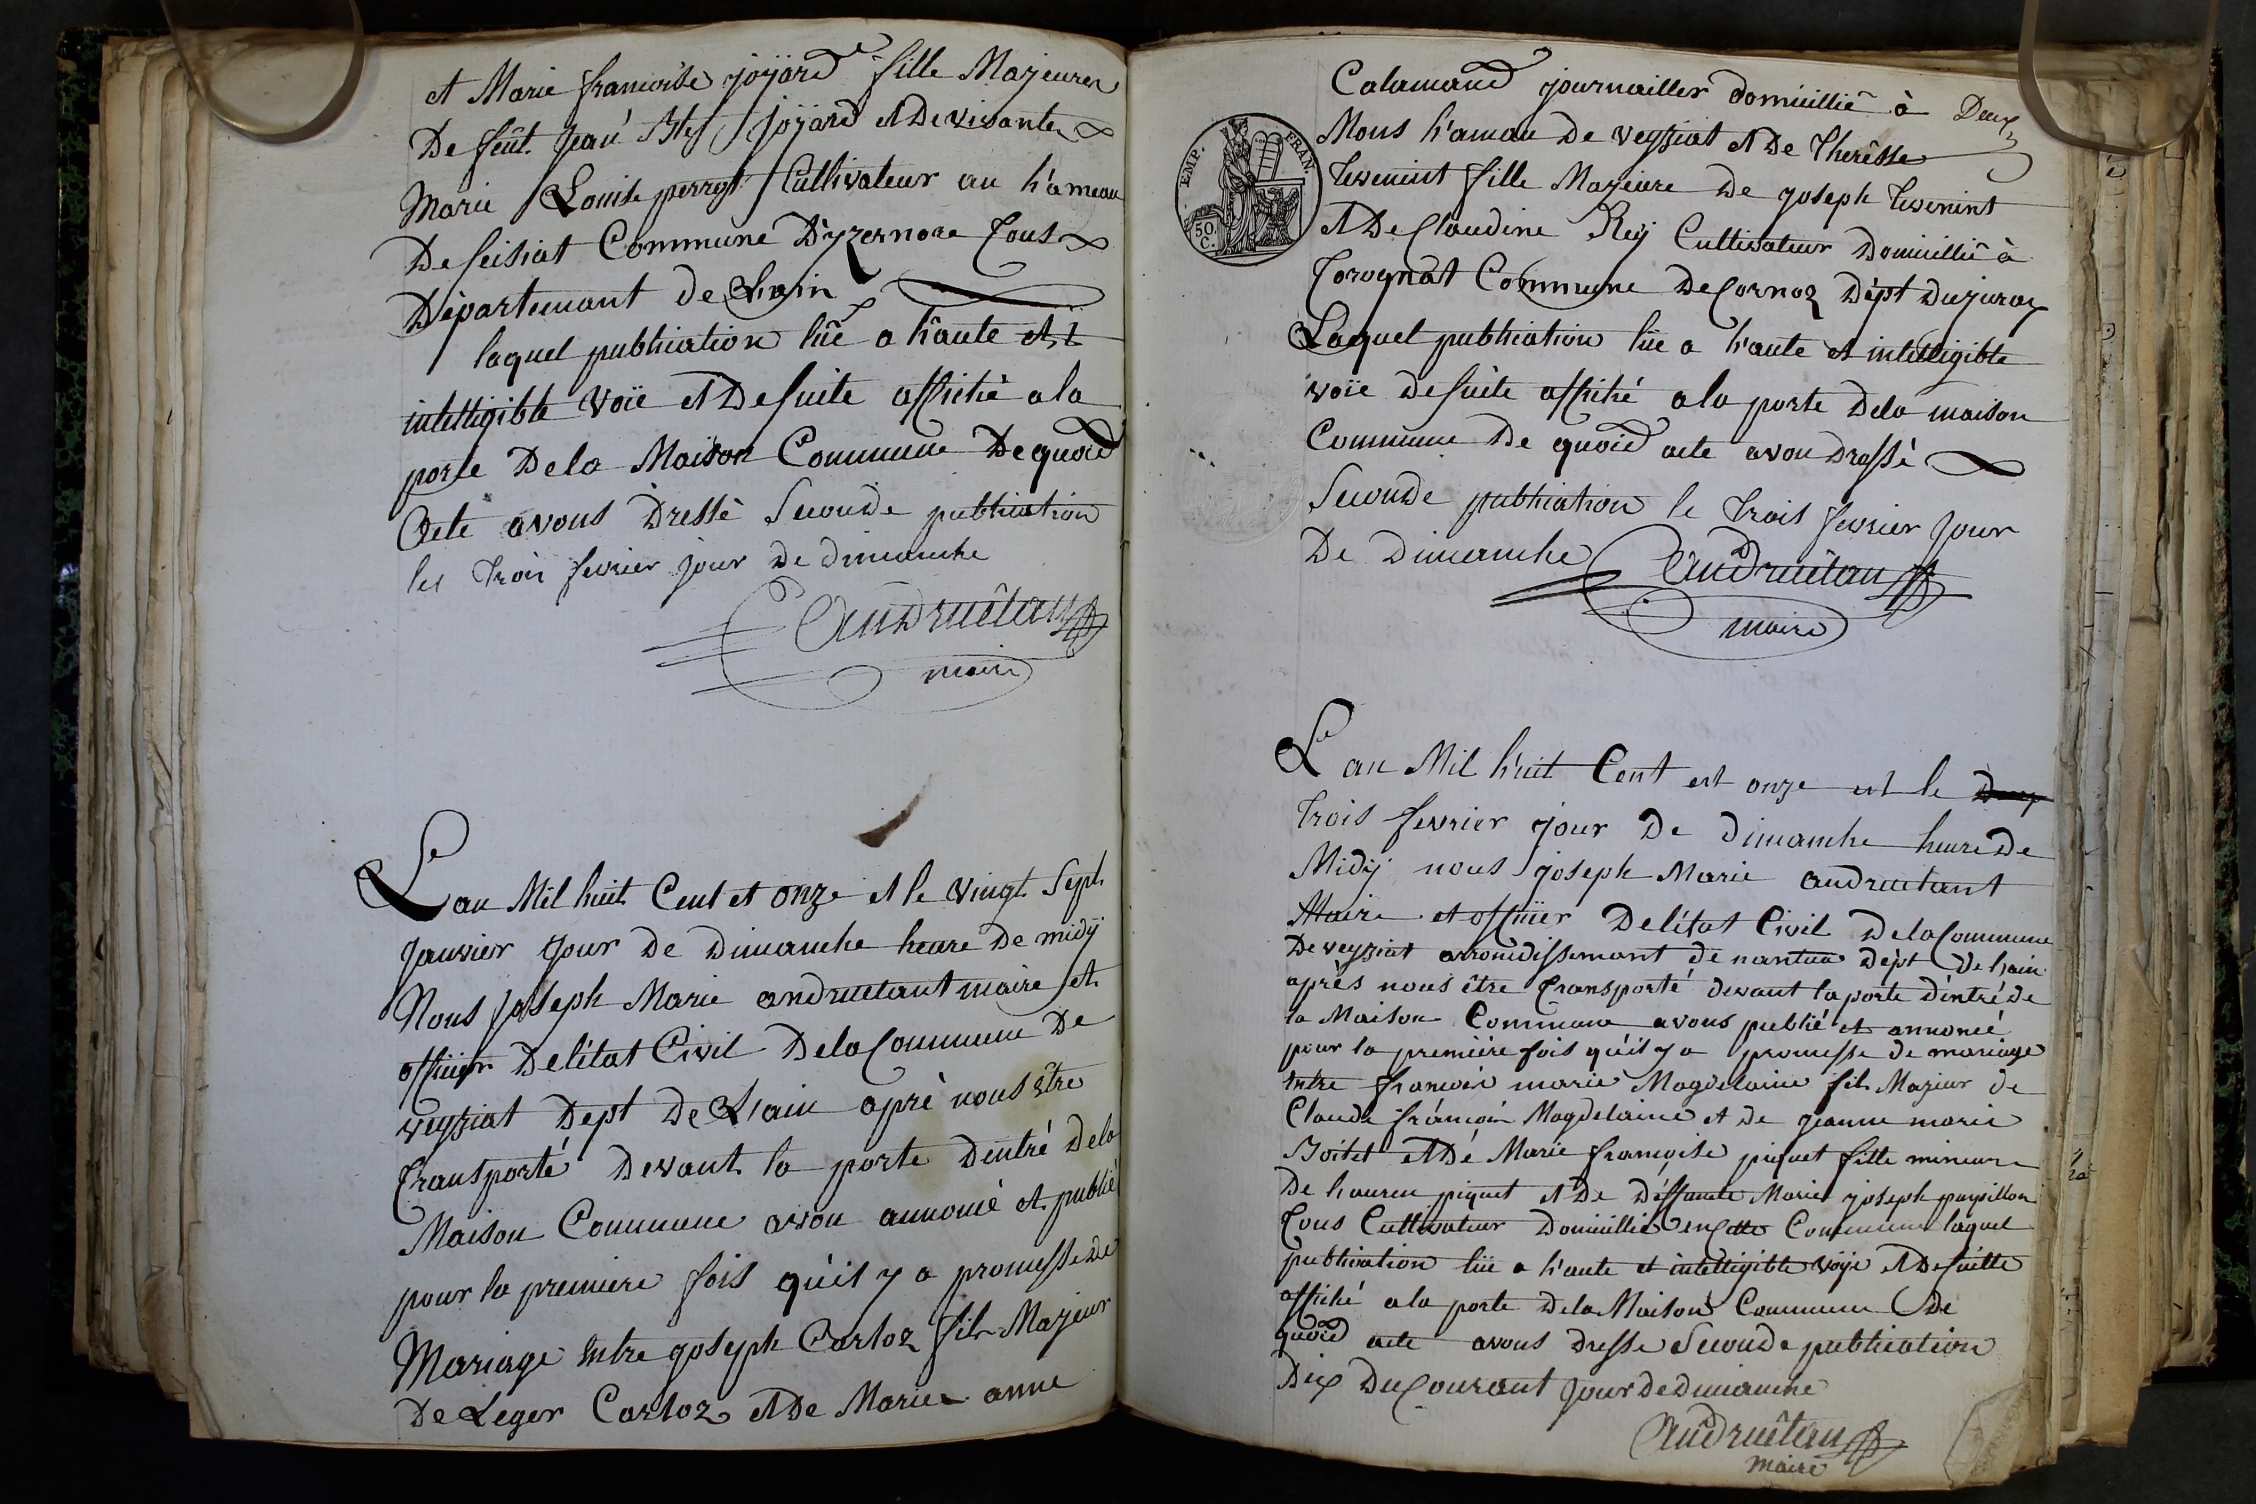 et Marie francoise joyard fille Majeure
De feût Jean Bte joyard et De vivante
Marie Louise perrot Cultivateur au h'ameau
De seisiat Commune D'yzernore Tous
Département de L'ain
laquel publication lüe a h'aute et
intelligible voïe et De suite affiché a la
porte De la Maison Commune De quoid
Acte avons Dressé Seconde publication
les trois fevrier jour de dimanche
Andruétan
maire
L'an Mil huit Cent et onze et le vingt Sept
Janvier jour De Dimanche heure De midÿ
Nous Joseph Marie andruetant maire et
officier De l'état Civil De la Commune De
veyziat Dept De L'ain aprè nous être
transporté Devant la porte D'entré De la
Maison Commune avon annoncé et publié
pour la premiere fois qu'il y a promesse De
Mariage entre joseph Carloz fils Majeur
De Leger Carloz et De Marie anne
EMP. FRAN.
50 C.
Calamand journaillier domicillié à Deux
Mons h'amau De veyziat et De Therêsse
fille Majeure De joseph
et De Claudine Reÿ Cultivateur Domicillié à
Torognat Commune De Cornoz Dépt Du jura
Laquel publication lüe a h'aute et intelligible
voïe De suite affiché a la porte De la maison
Commune De quoid acte avon drassé
Seconde publication le trois fevrier jour
De Dimanche Andruétan
maire
L'an Mil h'uit Cent est onze est le Deux
trois fevrier jour De Dimanche heure De
Midÿ nous joseph Marie andruetant
Maire et officier De l'état Civil De la Commune
De veyziat arrondissemant de nantua dépt De L'ain
après nous être transporté devant la porte D'entré de
la Maison Commune avons publié et annoncé
pour la première fois qu'il y a promesse de mariage
entre francois marie Magdelaine fils Majeur de
Claude françois Magdelaine et de jeanne marie
Boitet et De Marie françoise piquet fille mineure
De Laurent piquet et De Déffunte Marie joseph papillon
Tous Cultivateur Domicillié en Cette Commune laquel
publication lüe a h'aute et intelligible voije et De suitte
affiché a la porte De la Maison Commune De
quoid acte avons dresse Seconde publication
Dix Du Courant jour De Dimanche
Andruétan
maire